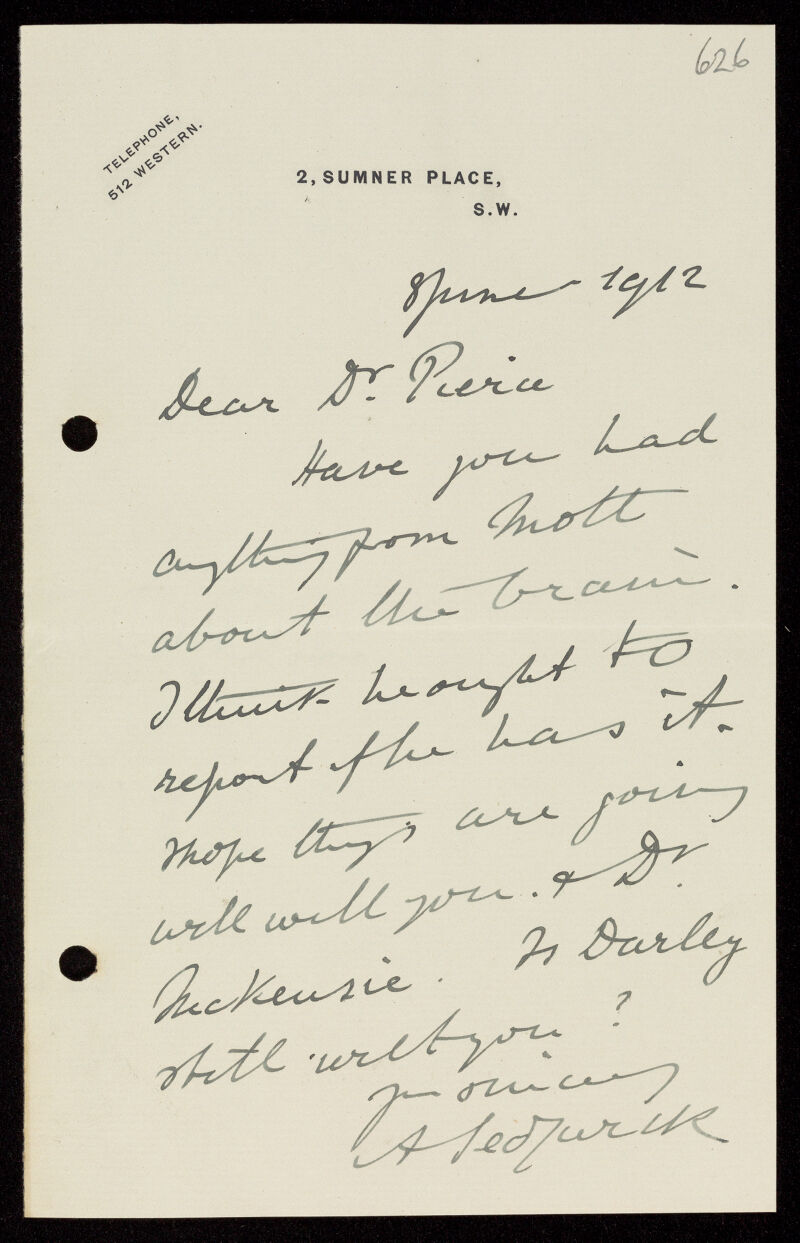 626
TELEPHONE,
512 WESTERN.
2, SUMNER PLACE,
S.W.
8 June 1912
Dear Dr. Pierce
Have you had
anything from Mott
about the brain.
I think he ought to
report if he has it.
I hope things are going
well with you. & Dr.
McKensie. Is Darley
still with you?
yrs sincerely
A Sedgwick